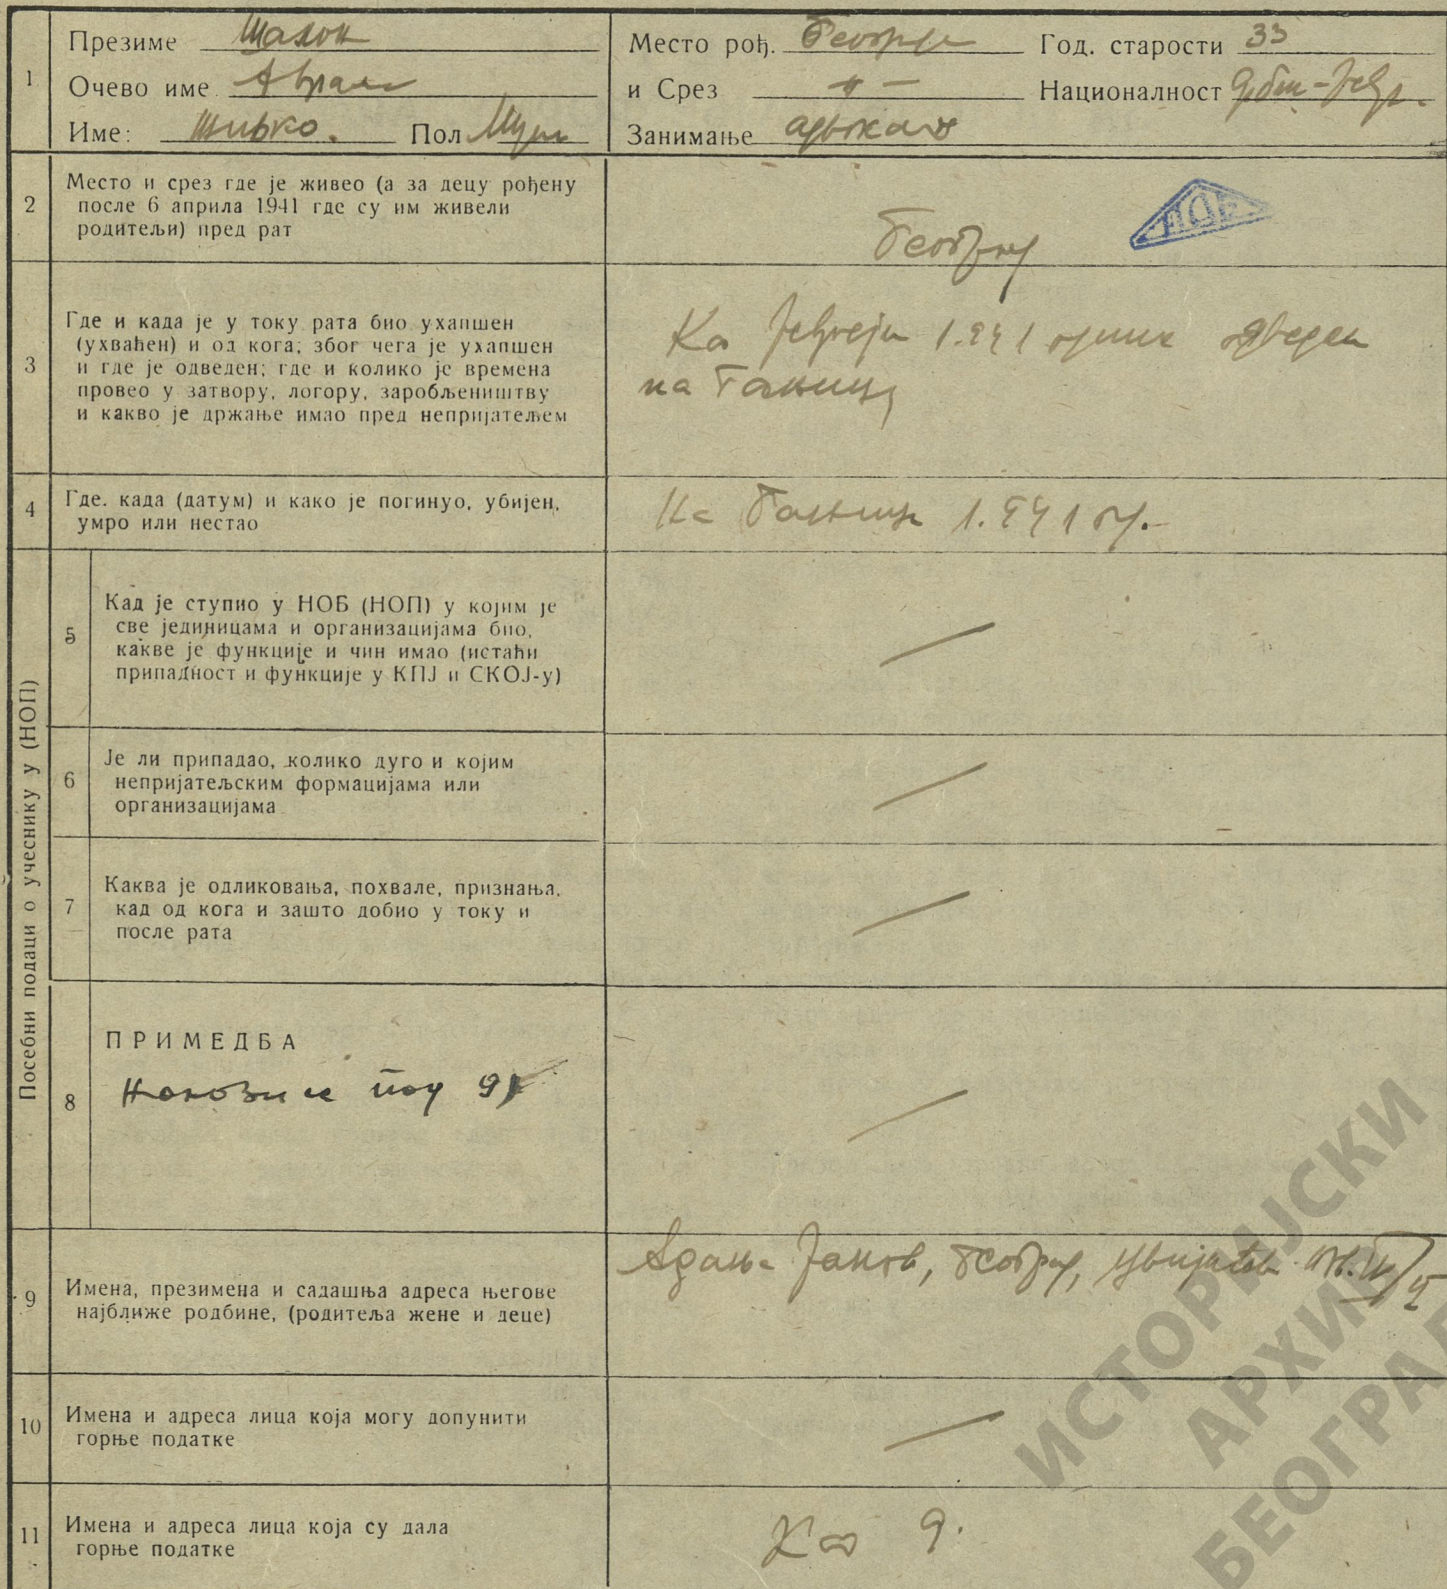 1
Презиме Шалом
Очево име Аврам
Име: Живко. Пол Муш
Место рођ. Београд Год. старости 33
и Срез -〃- Националност Србин-Јевр.
Занимање адвокат
2
Место и срез где је живео (а за децу рођену
после 6 априла 1941 где су им живели
родитељи) пред рат
Београд
3
Где и када је у току рата био ухапшен
(ухваћен) и од кога; због чега је ухапшен
и где је одведен; где и колико је времена
провео у затвору, логору, заробљеништву
и какво је држање имао пред непријатељем
Као Јевреји 1.941 године одведен
на Бањицу
4
Где. када (датум) и како је погинуо, убијен,
умро или нестао
На Бањици 1.941 г.-
Посебни подаци о учеснику у (НОП)
5
Кад је ступио у НОБ (НОП) у којим је
све јединицама и организацијама био,
какве је функције и чин имао (истаћи
припадност и функције у КПЈ и СКОЈ-у)
6
Је ли припадао, колико дуго и којим
непријатељским формацијама или
организацијама
7
Каква је одликовања, похвале, признања.
кад од кога и зашто добио у току и
после рата
8
ПРИМЕДБА
под 9
9
Имена, презимена и садашња адреса његове
најближе родбине, (родитеља жене и деце)
Адања Јаков, Београд,
10
Имена и адреса лица која могу допунити
горње податке
11
Имена и адреса лица која су дала
горње податке
Као 9.
ИСТОРИЈСКИ
АРХИВ
БЕОГРАД